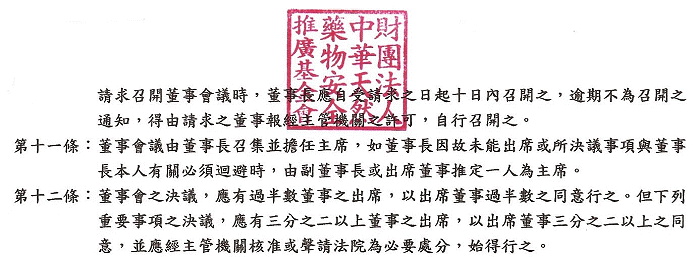 財團法人
中華天然
藥物安全
推廣基金會
請求召開董事會議時，董事長應自受請求之日起十日內召開之，逾期不為召開之
通知，得由請求之董事報經主管機關之許可，自行召開之。
第十一條：董事會議由董事長召集並擔任主席，如董事長因故未能出席或所決議事項與董事
長本人有關必須迴避時，由副董事長或出席董事推定一人為主席。
第十二條：董事會之決議，應有過半數董事之出席，以出席董事過半數之同意行之。但下列
重要事項之決議，應有三分之二以上董事之出席，以出席董事三分之二以上之同
意，並應經主管機關核准或聲請法院為必要處分，始得行之。